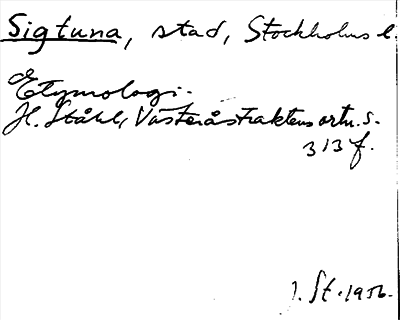 Sigtuna, stad, Stockholms l.
Etymologi.
H. Ståhl, Västeråstraktens ortn. s.
313 f.
J. St. 1956.